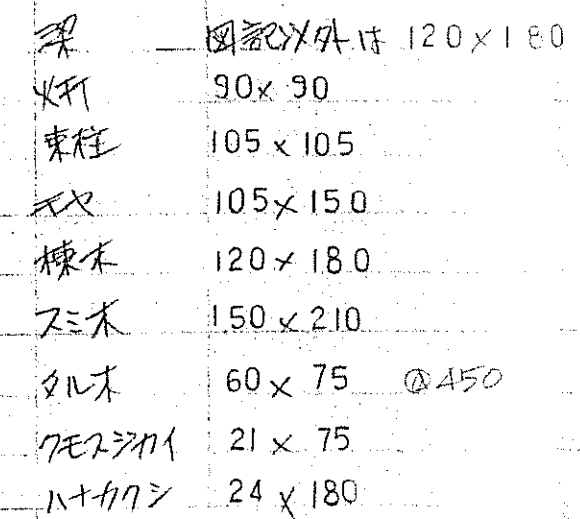 梁 図記以外は 120×180
火打 90×90
束柱 105×105
モヤ 105×150
棟木 120×180
スミ木 150×210
タル木 60×75 @450
クモスジカイ 21×75
ハナカクシ 24×180